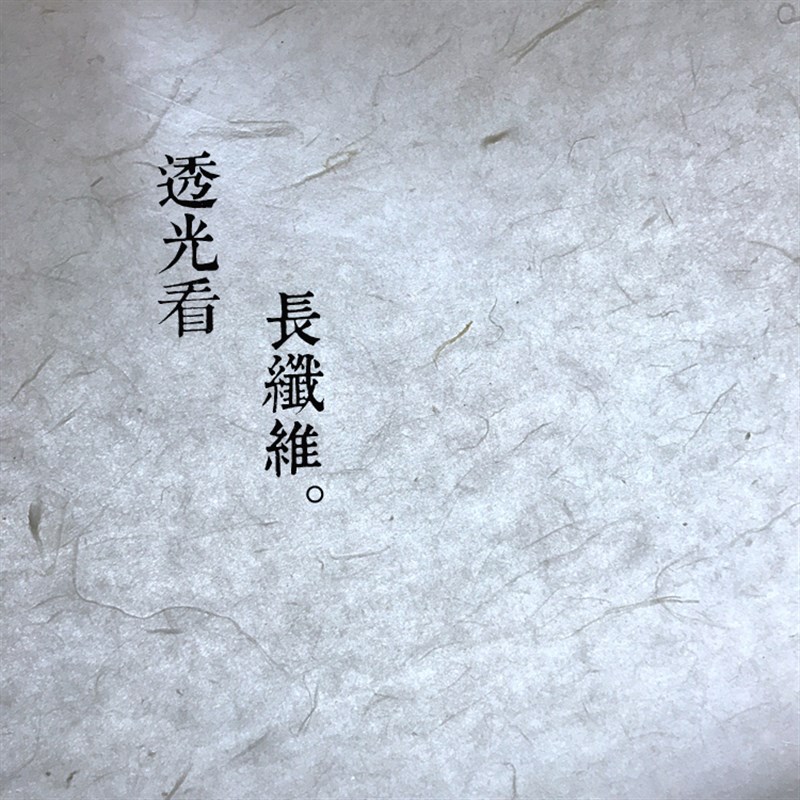 透光看
長纖維。